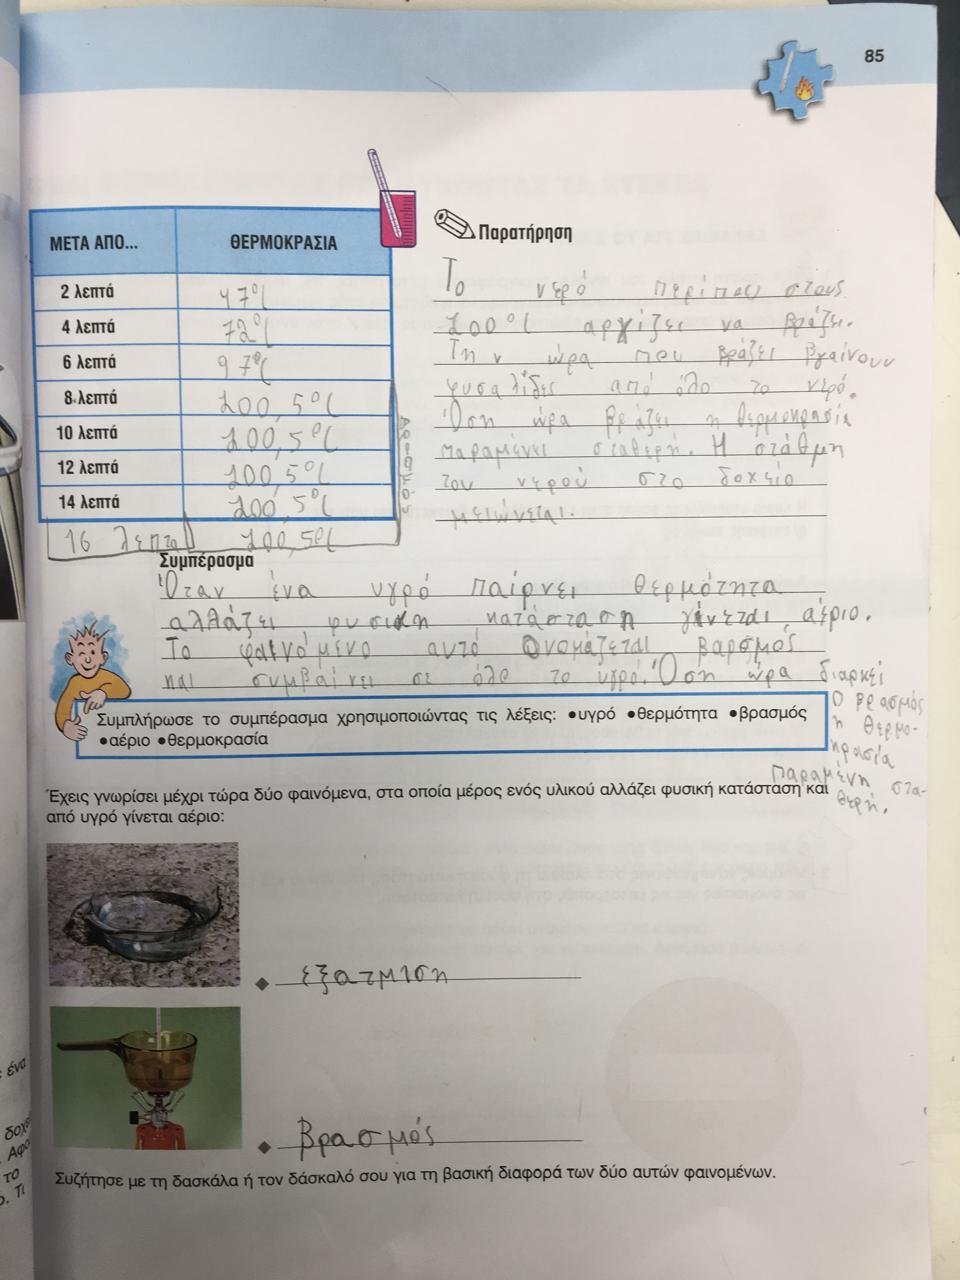 85
ΜΕΤΑ ΑΠΟ... ΘΕΡΜΟΚΡΑΣΙΑ
2 λεπτά 47°C
4 λεπτά 72°C
6 λεπτά 97°C
8 λεπτά 100,5°C
10 λεπτά 100,5°C
12 λεπτά 100,5°C
14 λεπτά 100,5°C
16 λεπτα 100,5°C
Παρατήρηση
Το νερό περίπου στους
100°C αρχίζει να βράζει.
Την ώρα που βράζει βγαίνουν
φυσαλίδες από όλο το νερό.
Όση ώρα βράζει η θερμοκρησία
παραμένει σταθερή. Η στάθμη
του νερού στο δοχείο
μειώνεται.
Συμπέρασμα
Όταν ένα υγρό παίρνει θερμότητα
αλλάζει φυσικη κατάσταση γίνεται αέριο.
Το φαινόμενο αυτό ονομάζεται βαρσμός
και συμβαίνει σε όλο το υγρό. Όση ώρα διαρκεί
ο βρασμός
η θερμο-
κρασία
παραμένη στα-
θερή.
Συμπλήρωσε το συμπέρασμα χρησιμοποιώντας τις λέξεις: •υγρό •θερμότητα •βρασμός
•αέριο •θερμοκρασία
Έχεις γνωρίσει μέχρι τώρα δύο φαινόμενα, στα οποία μέρος ενός υλικού αλλάζει φυσική κατάσταση και
από υγρό γίνεται αέριο:
εξατμιση
βρασμός
Συζήτησε με τη δασκάλα ή τον δάσκαλό σου για τη βασική διαφορά των δύο αυτών φαινομένων.
ένα
το